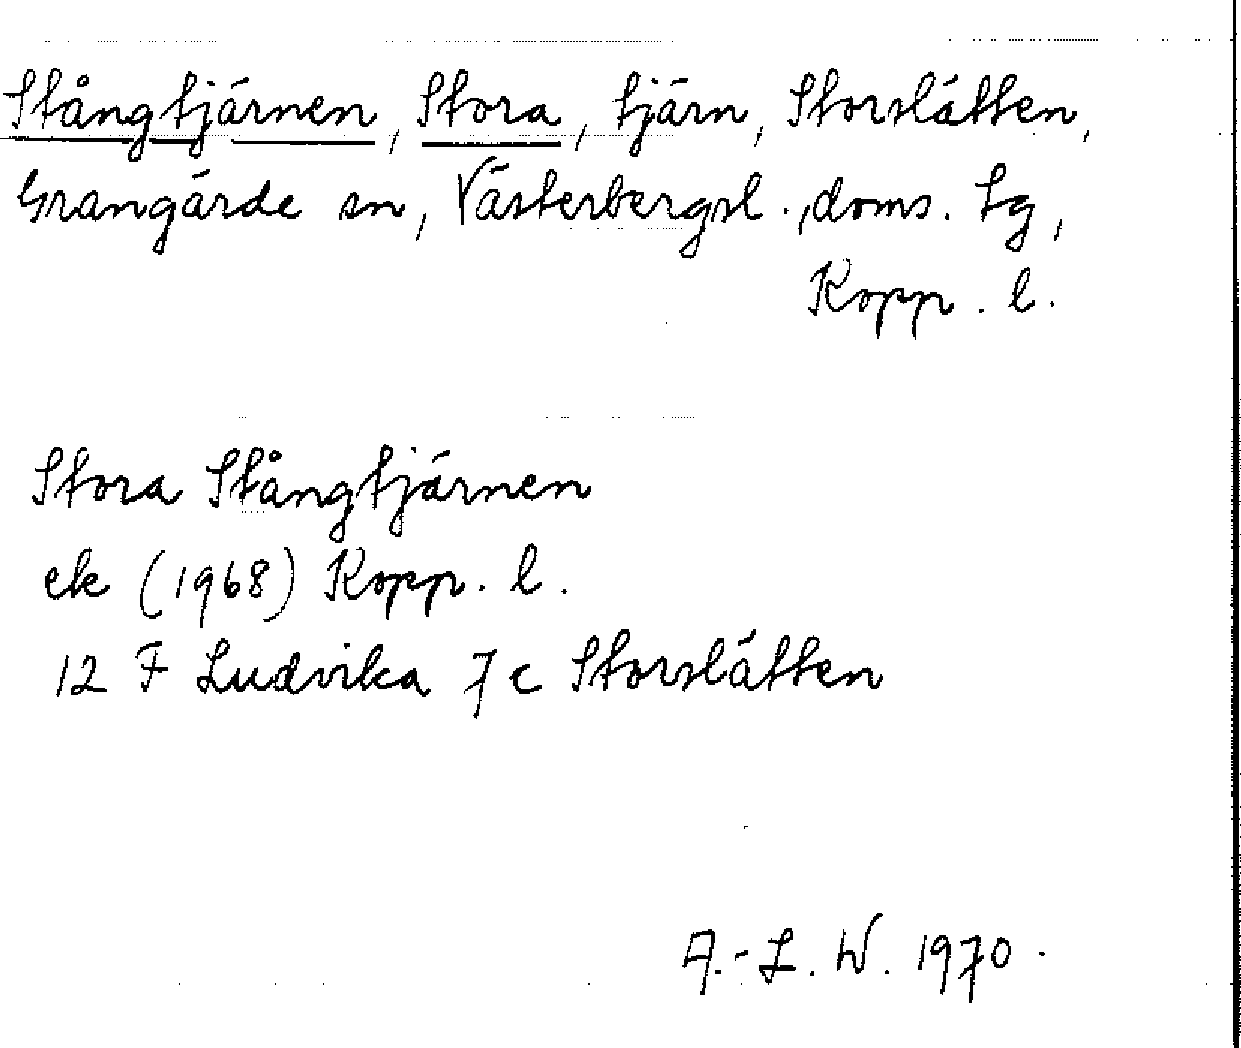 Stångtjärnen, Stora, tjärn, Storslätten,
Grangärde sn, Västerbergsl., doms. tg,
Kopp. l.
Stora Stångtjärnen
ek (1968) Kopp. l.
12 F Ludvika 7 c Storslätten
A.-L. W. 1970.